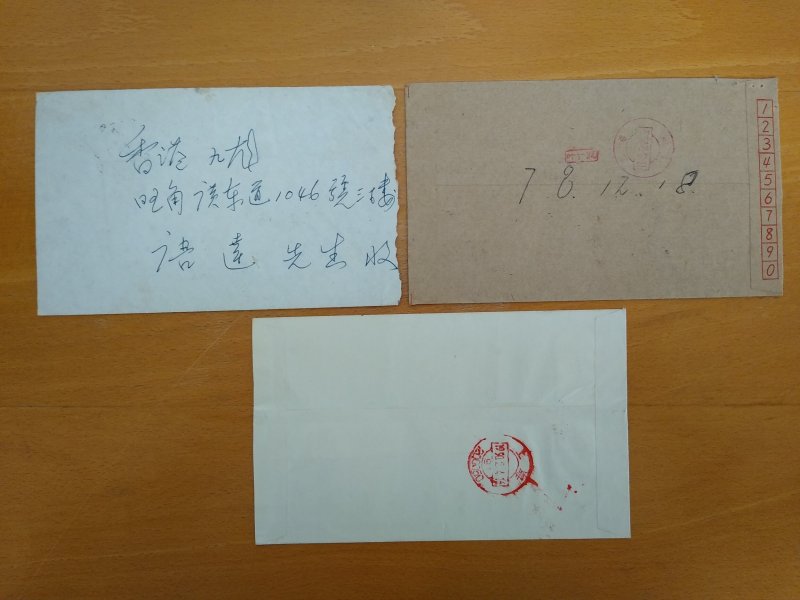 香港 九龙
旺角 广东道 1046 號三楼
语 達 先生 收
78.12.18.
1
2
3
4
5
6
7
8
9
0